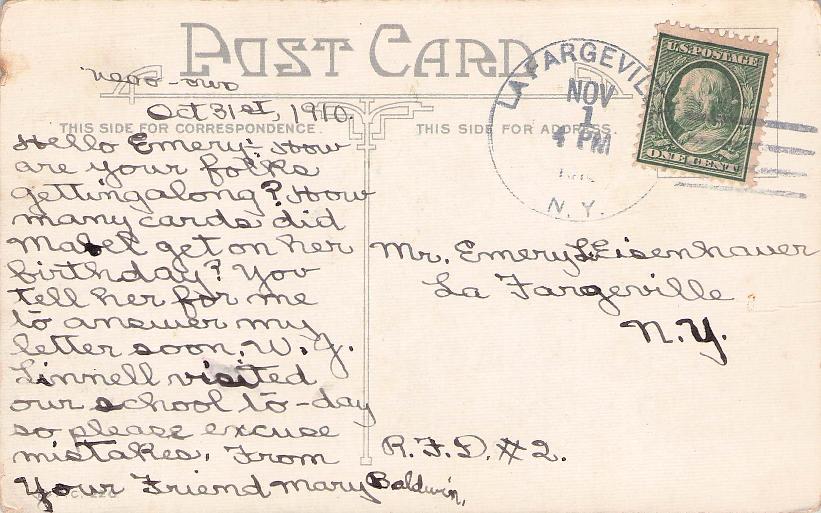 POST CARD
Oct 31st, 1910.
THIS SIDE FOR CORRESPONDENCE.
Hello Emery: How
are your folks
getting along? How
many cards did
Mabel get on her
birthday? You
tell her for me
to answer my
letter soon. W. J.
Linnell visited
our school to-day
so please excuse
mistakes. From
Your Friend Mary Baldwin,
THIS SIDE FOR ADDRESS.
LA FARGEVIL
NOV
1
4 PM
N.Y.
U.S. POSTAGE
ONE CENT
Mr. Emery Eisenhauer
La Fargeville
N.Y.
R.F.D. #2.